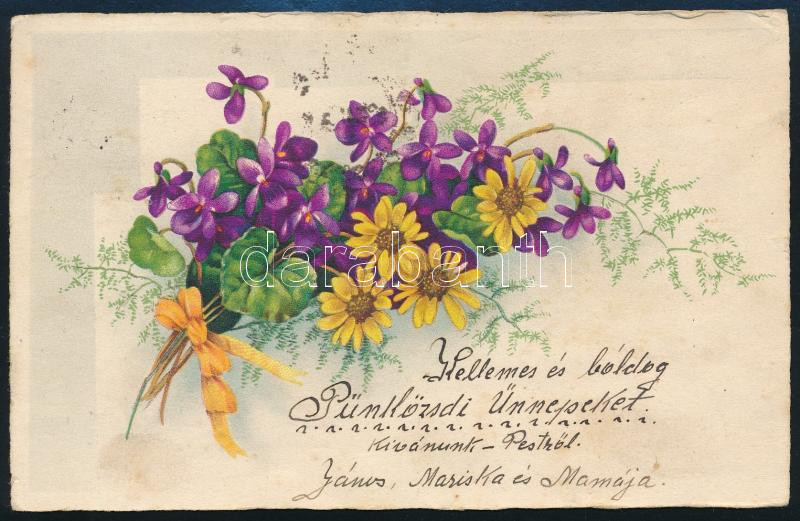 darabanth
Kellemes és bóldog
Pünközsdi Ünnepeket.
Kivánunk – Pestről.
János, Mariska és Mamája.